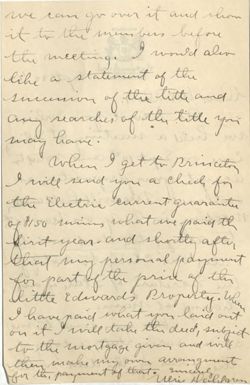 we can go over it and show
it to the members before
the meeting. I would also
like a statement of the
succession of the title and
any searches of the title you
may have.
When I get to Princeton
I will send you a check for
the Electric current guarantee
of $150 minus what we paid the
first year and shortly after
that my personal payment
for part of the price of the
little Edwards Property. When
I have paid what you laid out
on it I will take the deed, subject
to the mortgage given and will
then make my own arrangement
for the payment of that. Sincerely